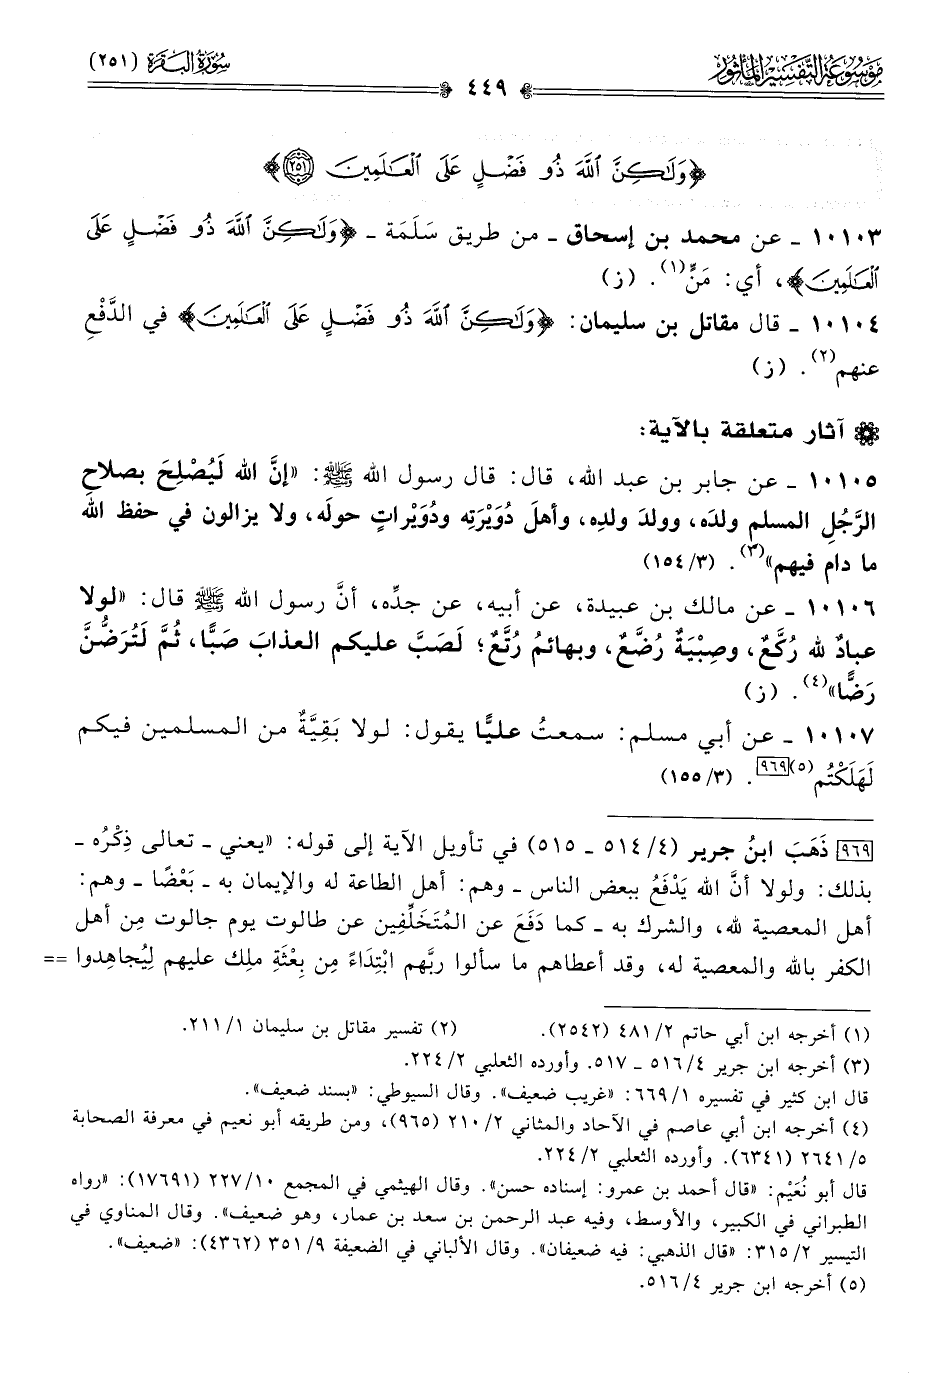 مَوْسُوعَة التَّفْسِيرِ المَأْثُور
سُورَةُ البَقَرَة (٢٥١)
٤٤٩
﴿وَلَٰكِنَّ ٱللَّهَ ذُو فَضْلٍ عَلَى ٱلْعَٰلَمِينَ ٢٥١﴾
١٠١٠٣ ـ عن محمد بن إسحاق ـ من طريق سَلَمَة ـ ﴿وَلَٰكِنَّ ٱللَّهَ ذُو فَضْلٍ عَلَى
ٱلْعَٰلَمِينَ﴾، أي: مَنٍّ(١). (ز)
١٠١٠٤ ـ قال مقاتل بن سليمان: ﴿وَلَٰكِنَّ ٱللَّهَ ذُو فَضْلٍ عَلَى ٱلْعَٰلَمِينَ﴾ في الدَّفْعِ
عنهم(٢). (ز)
آثار متعلقة بالآية:
١٠١٠٥ ـ عن جابر بن عبد الله، قال: قال رسول الله ﷺ: «إنَّ الله لَيُصْلِحَ بصلاحِ
الرَّجُلِ المسلم ولدَه، وولدَ ولدِه، وأهلَ دُوَيْرَتِه ودُوَيْراتٍ حولَه، ولا يزالون في حفظ الله
ما دام فيهم»(٣). (١٥٤/٣)
١٠١٠٦ ـ عن مالك بن عبيدة، عن أبيه، عن جدِّه، أنَّ رسول الله ﷺ قال: «لولا
عبادٌ لله رُكَّعٌ، وصِبْيَةٌ رُضَّعٌ، وبهائمُ رُتَّعٌ؛ لَصَبَّ عليكم العذابَ صَبًّا، ثُمَّ لَتُرَضُّنَّ
رَضًّا»(٤). (ز)
١٠١٠٧ ـ عن أبي مسلم: سمعتُ عليًّا يقول: لولا بَقِيَّةٌ من المسلمين فيكم
لَهَلَكْتُم(٥)[٩٦٩]. (١٥٥/٣)
[٩٦٩] ذَهَبَ ابنُ جرير (٥١٤/٤ ـ ٥١٥) في تأويل الآية إلى قوله: «يعني ـ تعالى ذِكْرُه ـ
بذلك: ولولا أنَّ الله يَدْفَعُ ببعض الناس ـ وهم: أهل الطاعة له والإيمان به ـ بَعْضًا ـ وهم:
أهل المعصية لله، والشرك به ـ كما دَفَعَ عن المُتَخَلِّفِين عن طالوت يوم جالوت مِن أهل
الكفر بالله والمعصية له، وقد أعطاهم ما سألوا ربَّهم ابْتِدَاءً مِن بِعْثَةِ ملِك عليهم لِيُجاهِدوا ==
(١) أخرجه ابن أبي حاتم ٤٨١/٢ (٢٥٤٢). (٢) تفسير مقاتل بن سليمان ٢١١/١.
(٣) أخرجه ابن جرير ٥١٦/٤ ـ ٥١٧. وأورده الثعلبي ٢٢٤/٢.
قال ابن كثير في تفسيره ٦٦٩/١: «غريب ضعيف». وقال السيوطي: «بسند ضعيف».
(٤) أخرجه ابن أبي عاصم في الآحاد والمثاني ٢١٠/٢ (٩٦٥)، ومن طريقه أبو نعيم في معرفة الصحابة
٢٦٤١/٥ (٦٣٤١). وأورده الثعلبي ٢٢٤/٢.
قال أبو نُعَيْم: «قال أحمد بن عمرو: إسناده حسن». وقال الهيثمي في المجمع ٢٢٧/١٠ (١٧٦٩١): «رواه
الطبراني في الكبير، والأوسط، وفيه عبد الرحمن بن سعد بن عمار، وهو ضعيف». وقال المناوي في
التيسير ٣١٥/٢: «قال الذهبي: فيه ضعيفان». وقال الألباني في الضعيفة ٣٥١/٩ (٤٣٦٢): «ضعيف».
(٥) أخرجه ابن جرير ٥١٦/٤.